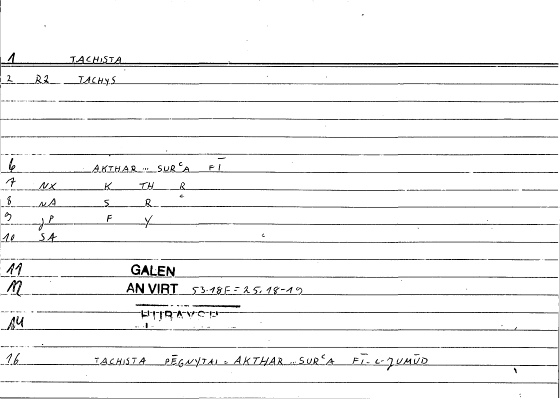 1 TACHISTA
2 R2 TACHYS
6 AKTHAR ... SURᶜA FĪ
7 NX K TH R
8 NA S R ᶜ
9 JP F Y
10 SA
11 GALEN
12 AN VIRT 53.18F = 25.18-19
14
16 TACHISTA PĒGNYTAI = AKTHAR ... SURᶜA FĪ-L-JUMŪD